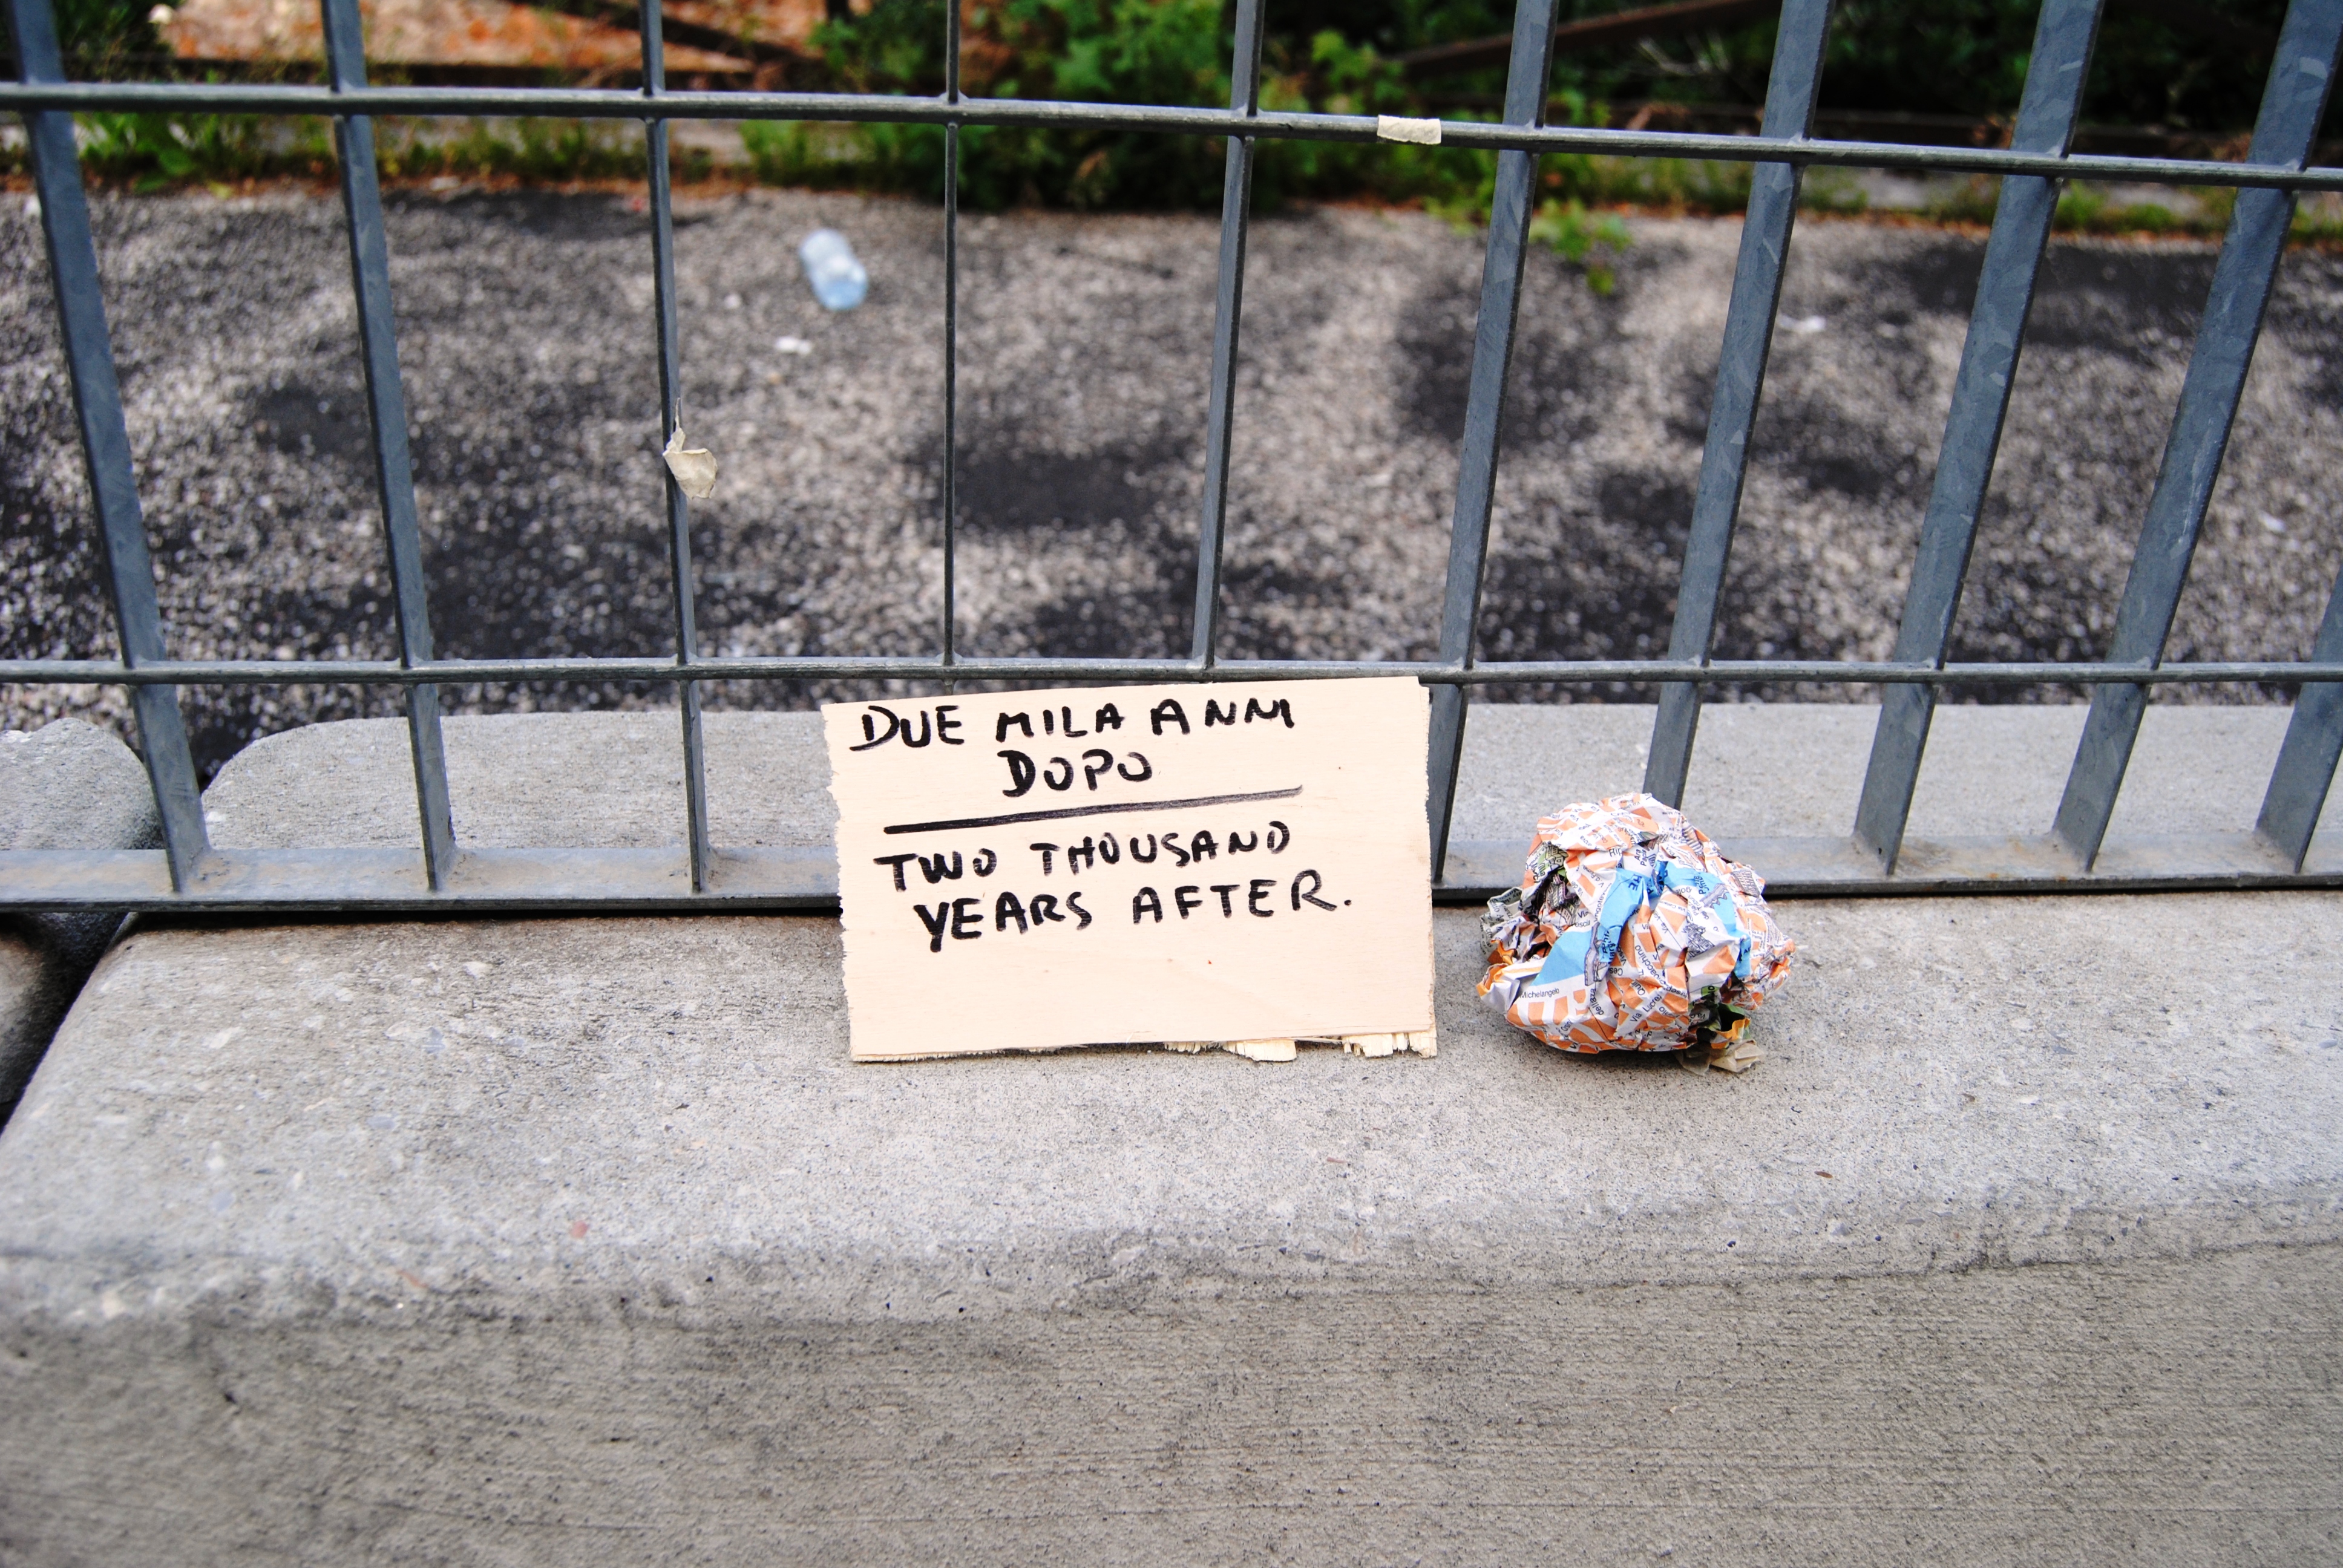 DUE MILA ANNI
DOPO
TWO THOUSAND
YEARS AFTER.
Michelangelo